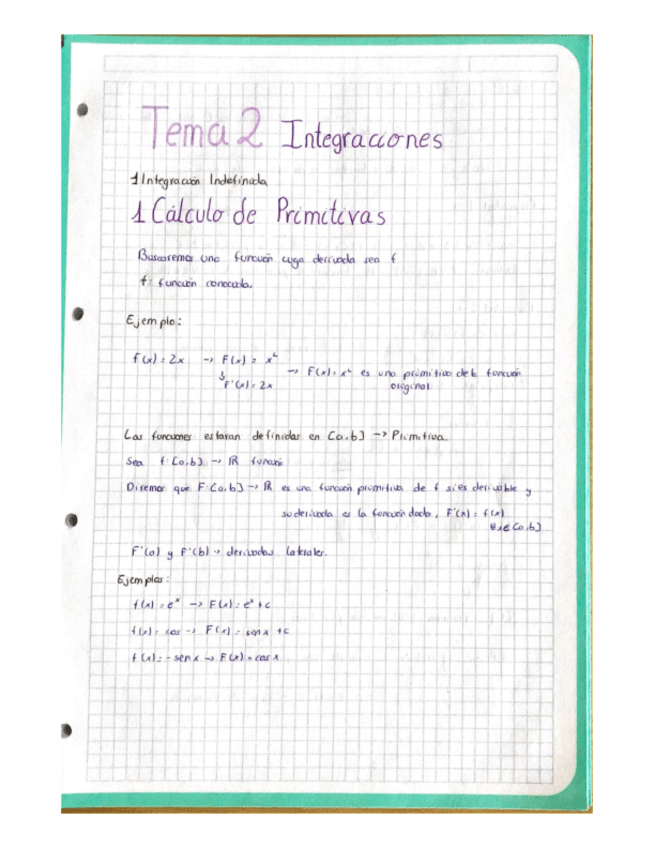 Tema 2 Integraciones
1 Integración Indefinida
1 Cálculo de Primitivas
Buscaremos una función cuya derivada sea f
f: función conocida.
Ejemplo:
f(x) = 2x → F(x) = x² → F(x) = x² es una primitiva de la función
↓ F'(x) = 2x original
Las funciones estaran definidas en [a,b] → Primitiva.
Sea f: [a,b] → ℝ función
Diremos que F: [a,b] → ℝ es una función primitiva de f si es derivable y
su derivada es la función dada, F'(x) = f(x)
∀x∈[a,b]
F'(a) y F'(b) → derivadas laterales.
Ejemplos:
f(x) = eˣ → F(x) = eˣ + c
f(x) = cos → F(x) = sen x + c
f(x) = -sen x → F(x) = cos x